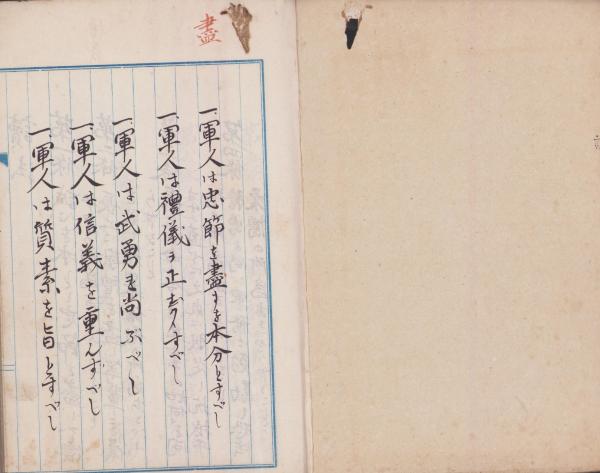 盡
一、軍人は忠節を盡すを本分とすべし
一、軍人は禮儀を正しくすべし
一、軍人は武勇を尚ぶべし
一、軍人は信義を重んずべし
一、軍人は質素を旨とすべし